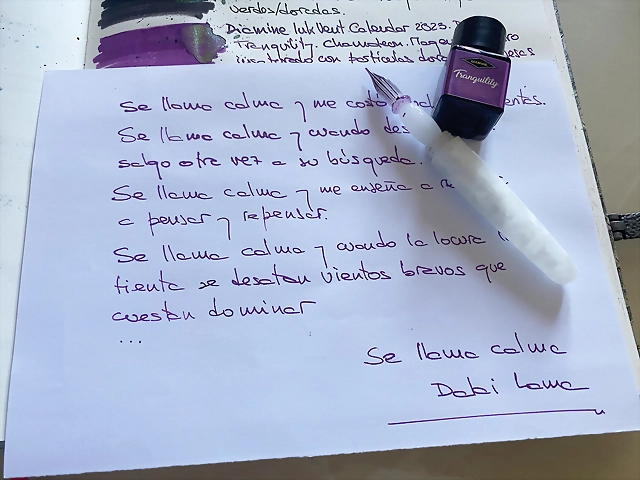 verdes/doradas.
Diamine Ink Vent Calendar 2023.
Tranquility. Chamaleon. Magenta
con partículas
Tranquility
Se llama calma y me costó
Se llama calma y cuando
salgo otra vez a su búsqueda.
Se llama calma y me enseña a
a pensar y repensar.
Se llama calma y cuando la locura
tienta se desatan vientos bravos que
cuestan dominar
...
Se llama calma
Dalai Lama